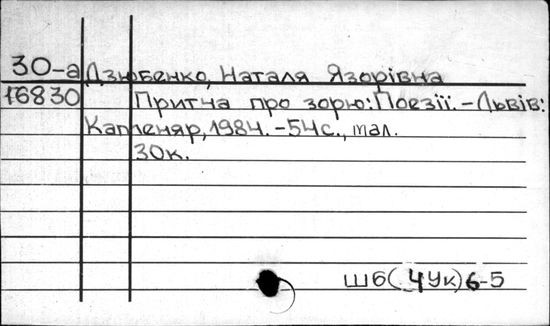 30-а Дзюбенко, Наталя Язорівна
16830 Притча про зорю: Поезії. - Львів:
Каменяр, 1984. - 54 с., іл.
30к.
Ш6(4Ук)6-5